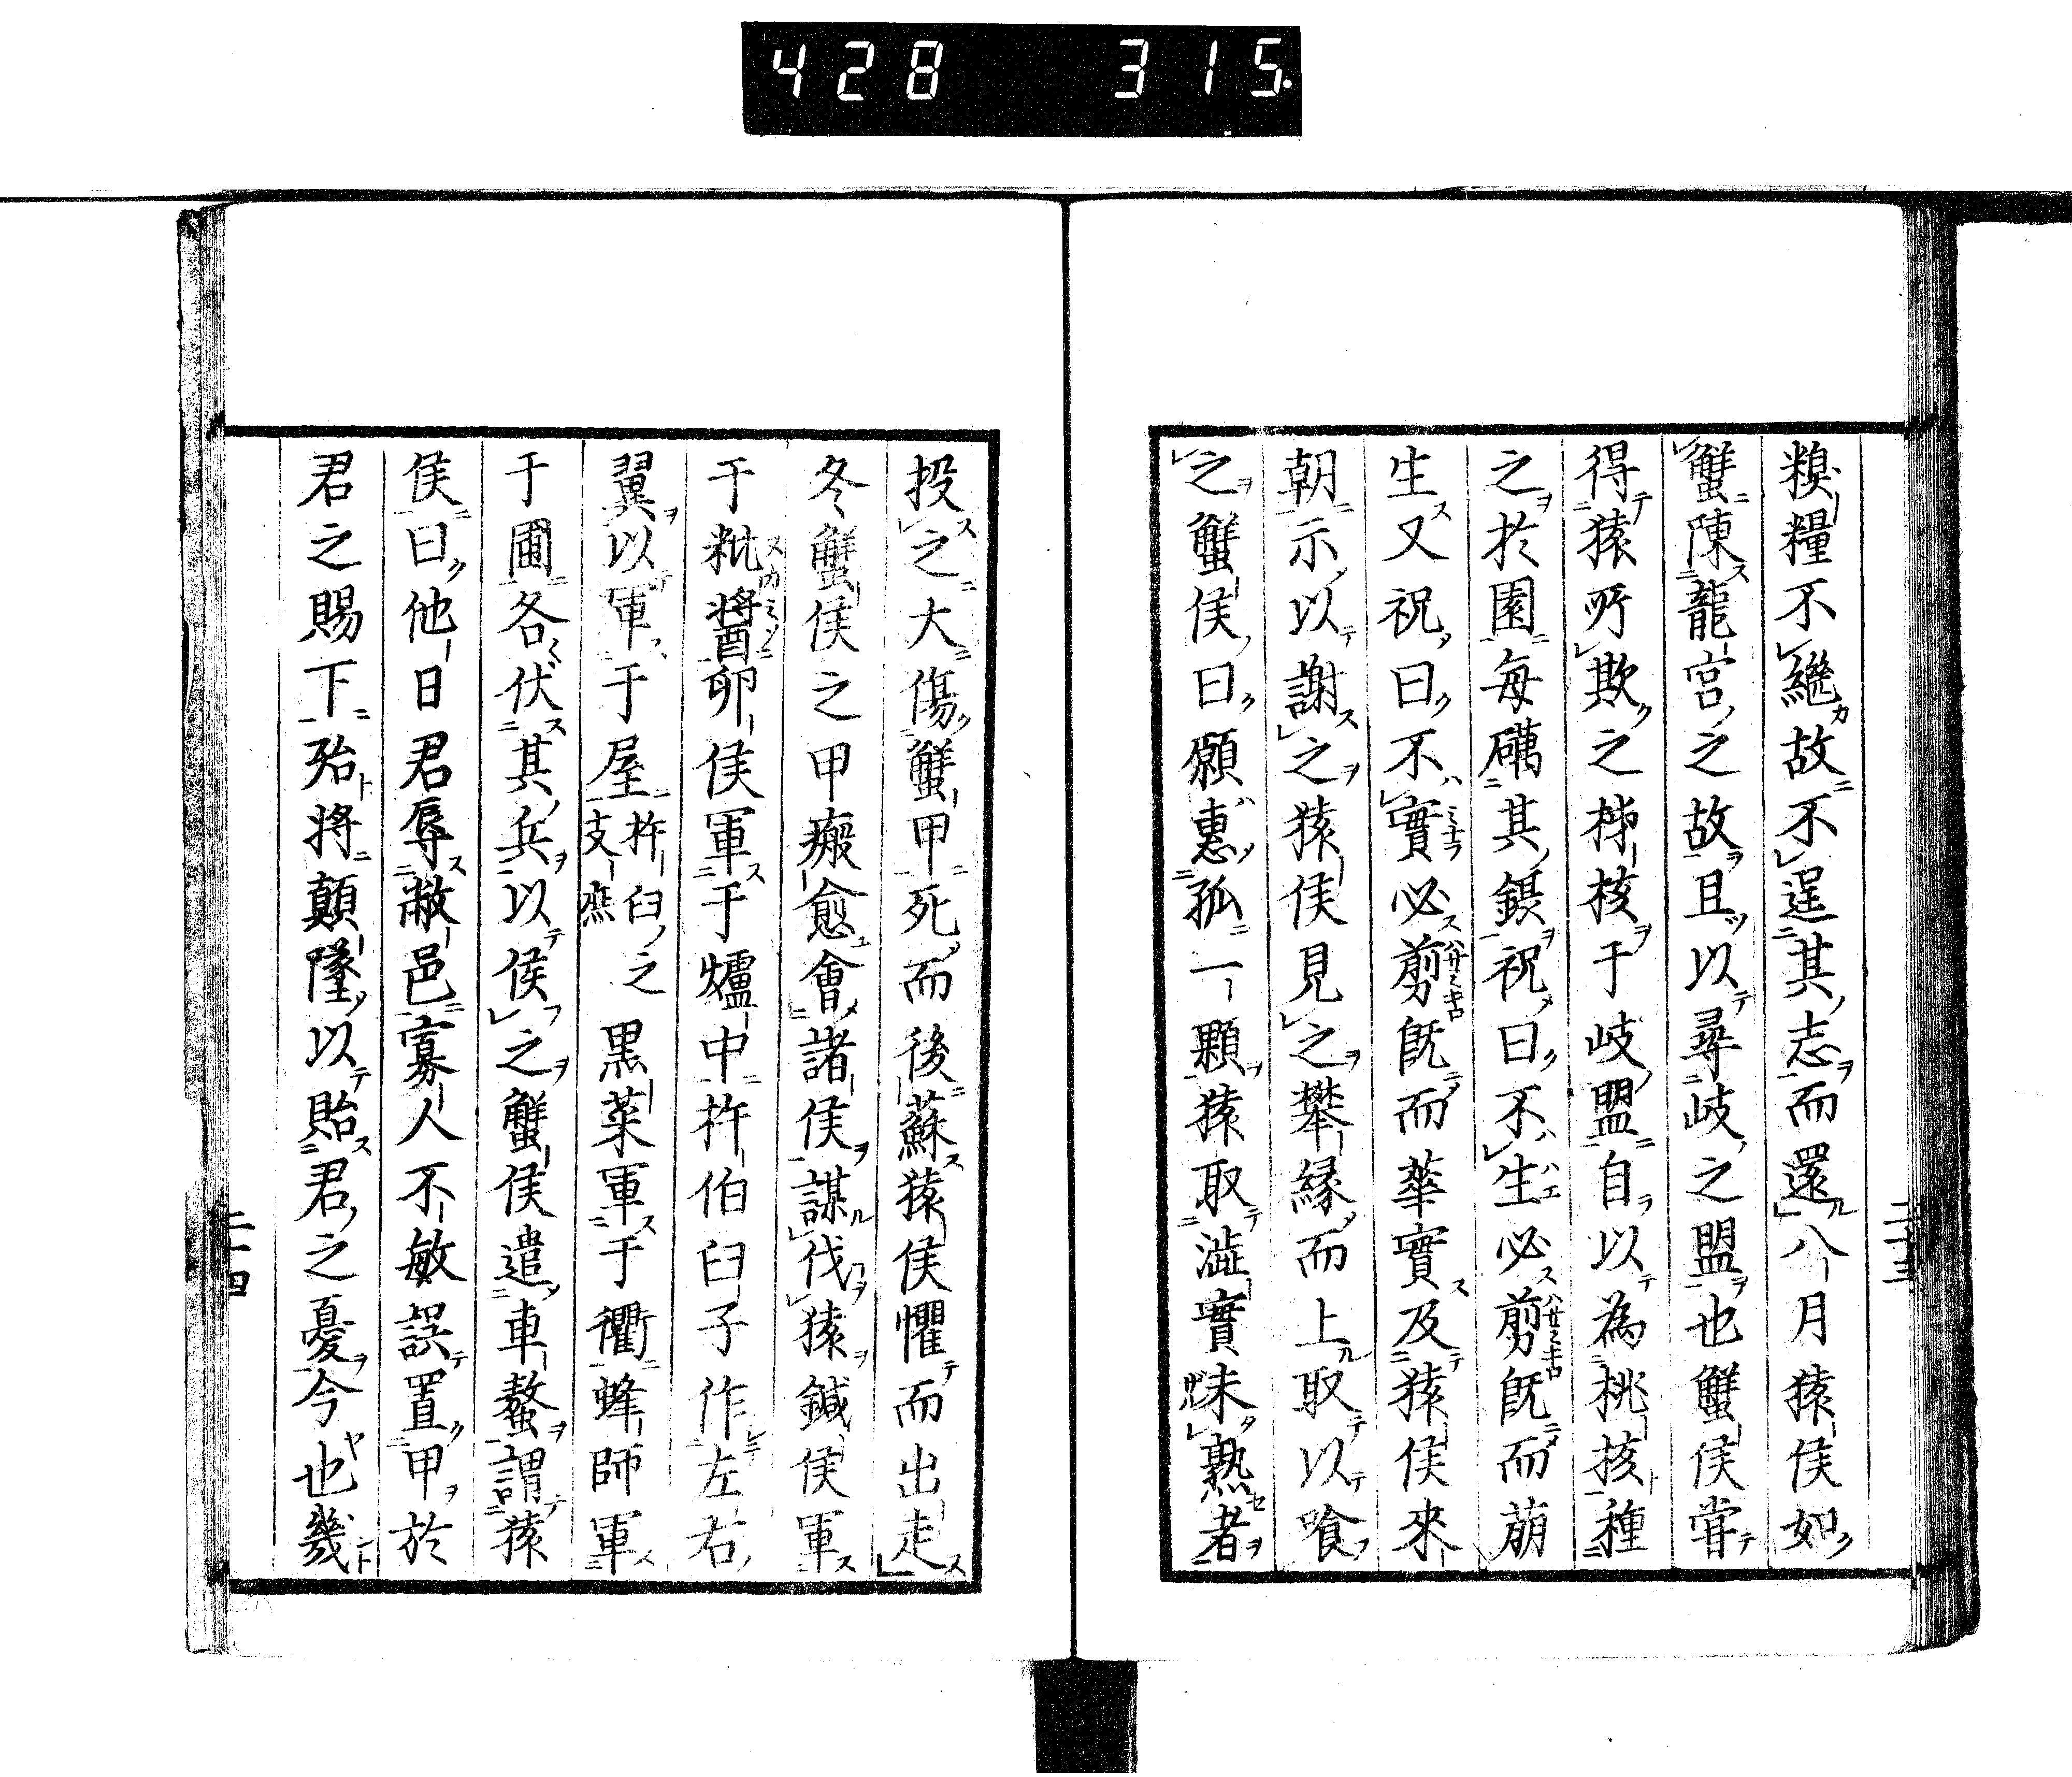 428 315.
糗糧不繼故不逞其志而還八月猿侯如
蟹陳龍宮之故且以尋岐之盟也蟹侯甞
得猿所欺之柹核于岐盟自以為桃核種
之於園每礪其鋏祝曰不生必剪既而萠
生又祝曰不實必剪既而華實及猿侯來
朝示以謝之猿侯見之攀縁而上取以喰
之蟹侯曰願惠孤一顆猿取澁實味熟者
二十三
投之大傷蟹甲死而後蘇猿侯懼而出走
冬蟹侯之甲瘢愈會諸侯謀伐猿鍼侯軍
于粃醬卵侯軍于爐中杵伯臼子作左右
翼以軍于屋杵臼之支㷊黒菜軍于衢蜂師軍
于圃各伏其兵以侯之蟹侯遣車螯謂猿
侯曰他日君辱敝邑寡人不敏誤置甲於
君之賜下殆將顛墜以貽君之憂今也幾
二十四